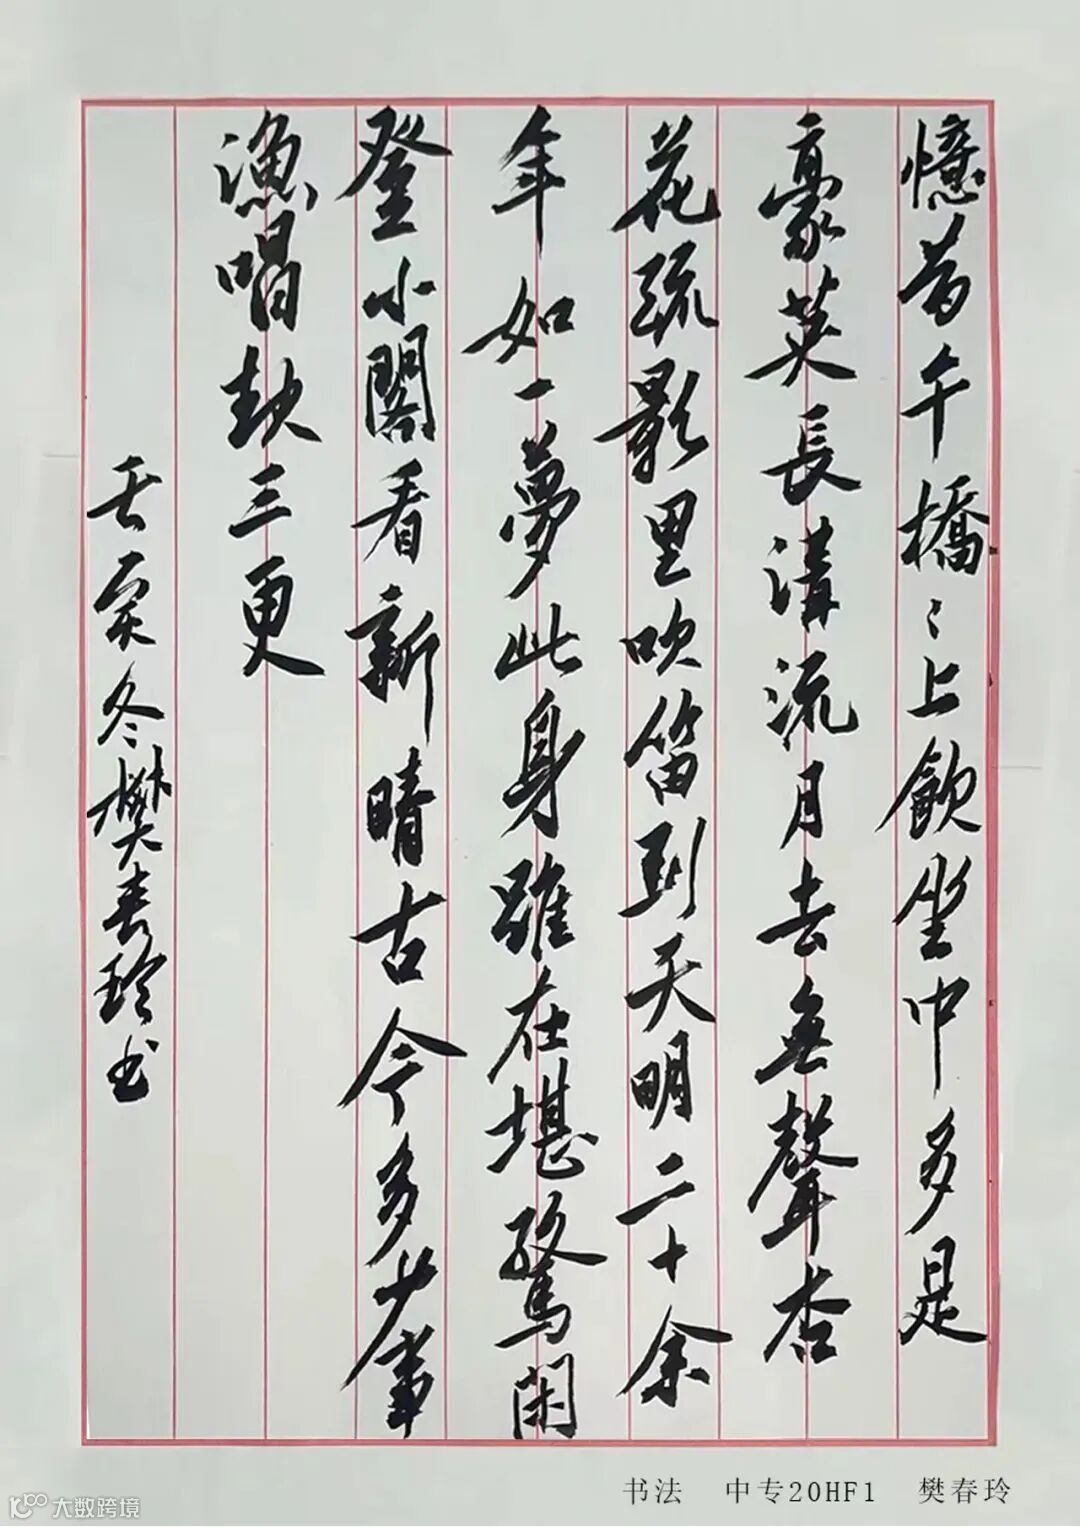 憶昔午橋〻上飲坐中多是
豪英長溝流月去無聲杏
花疏影里吹笛到天明二十余
年如一夢此身雖在堪驚閑
登小閣看新晴古今多少事
漁唱起三更
壬寅冬樊春玲书
书法 中专20HF1 樊春玲
大数跨境